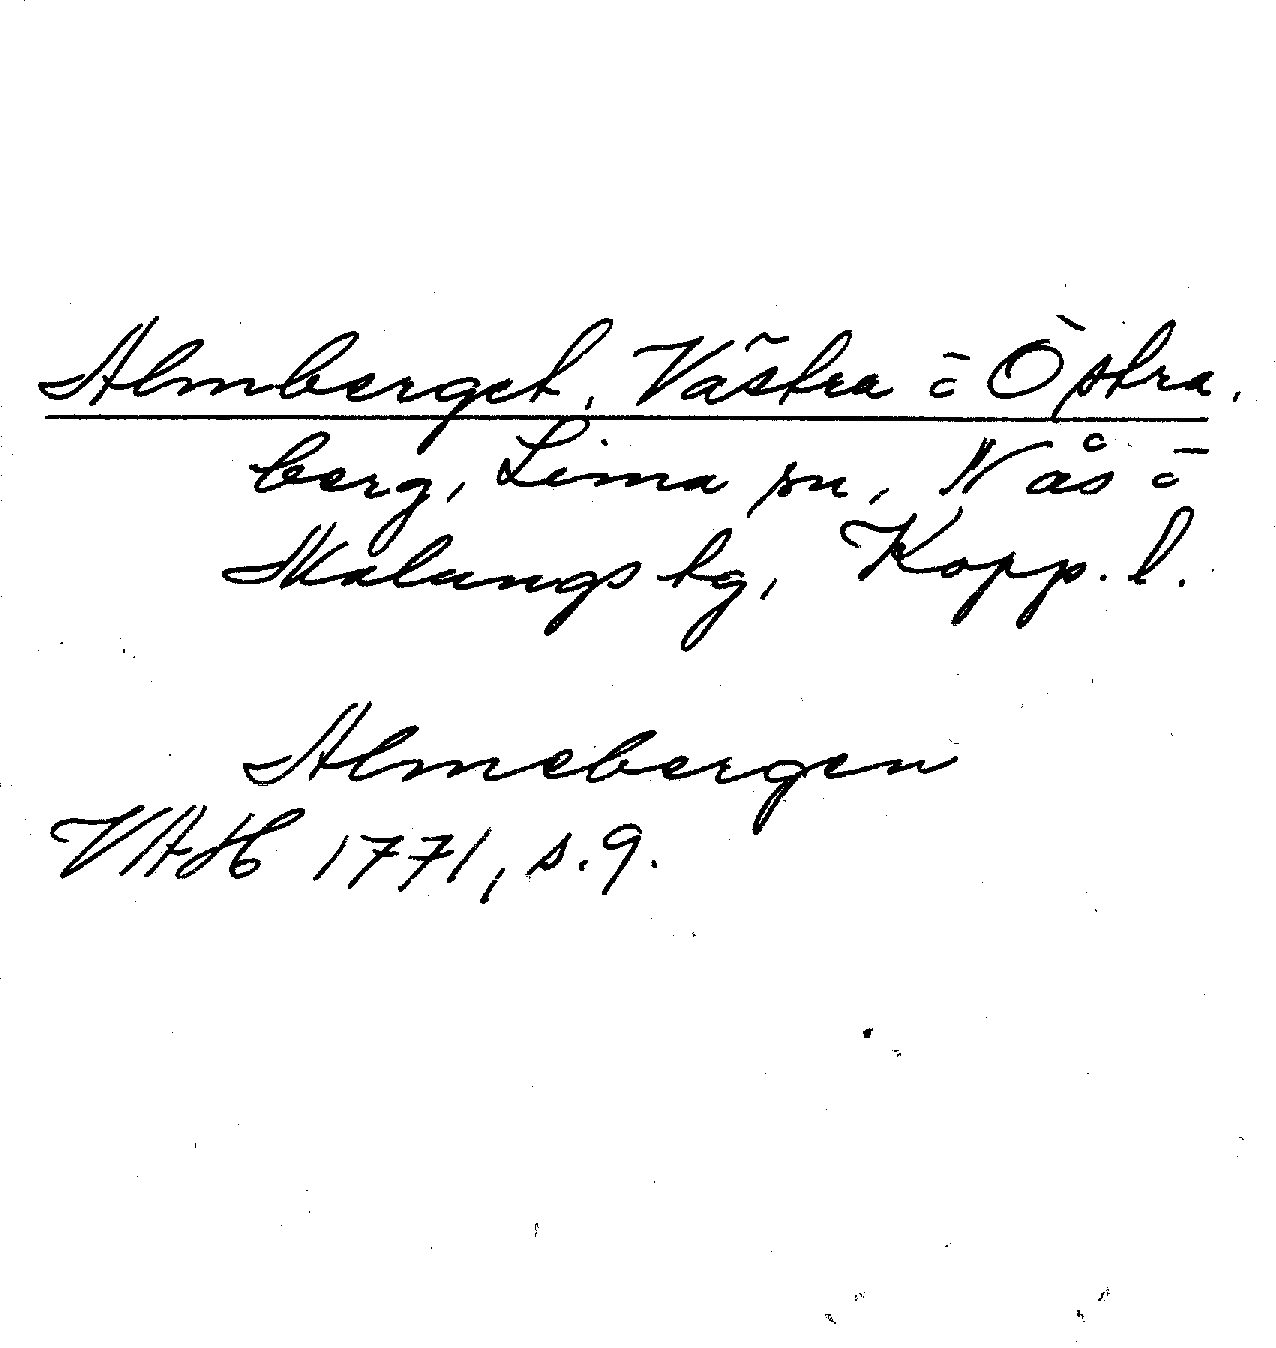 Almberget, Västra o Östra.
berg, Lima sn, Nås o
Malungs tg, Kopp. l.
Almebergen
VAH 1771, s. 9.